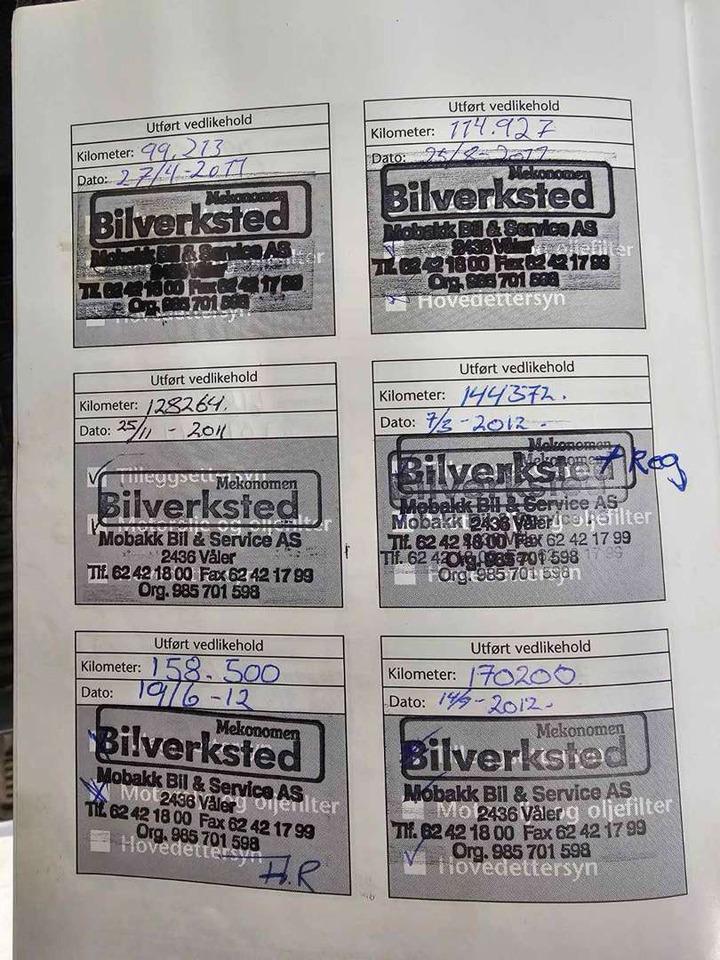 Utført vedlikehold
Kilometer: 99.213
Dato: 27/4-2011
Mekonomen
Bilverksted
Mobakk Bil & Service AS
2436 Våler
Tlf. 62 42 18 00 Fax 62 42 17 99
Org. 985 701 598
Hovedettersyn
Utført vedlikehold
Kilometer: 114.927
Dato: 25/8-2011
Mekonomen
Bilverksted
Mobakk Bil & Service AS
2436 Våler oljefilter
Tlf. 62 42 18 00 Fax 62 42 17 99
Org. 985 701 598
Hovedettersyn
Utført vedlikehold
Kilometer: 128264.
Dato: 25/11 - 2011
Tilleggsettersyn
Mekonomen
Bilverksted
Motorolje og oljefilter
Mobakk Bil & Service AS
2436 Våler
Tlf. 62 42 18 00 Fax 62 42 17 99
Org. 985 701 598
Utført vedlikehold
Kilometer: 144372.
Dato: 7/3-2012-
Mekonomen
Bilverksted + Reg
Mobakk Bil & Service AS
2436 Våler oljefilter
Tlf. 62 42 18 00 Fax 62 42 17 99
Org. 985 701 598
Hovedettersyn
Utført vedlikehold
Kilometer: 158.500
Dato: 19/6-12
Mekonomen
Bilverksted
Mobakk Bil & Service AS
2436 Våler
Motorolje og oljefilter
Tlf. 62 42 18 00 Fax 62 42 17 99
Org. 985 701 598
Hovedettersyn
H.R
Utført vedlikehold
Kilometer: 170200
Dato: 14/9-2012-
Mekonomen
Bilverksted
Mobakk Bil & Service AS
2436 Våler
Motorolje og oljefilter
Tlf. 62 42 18 00 Fax 62 42 17 99
Org. 985 701 598
Hovedettersyn